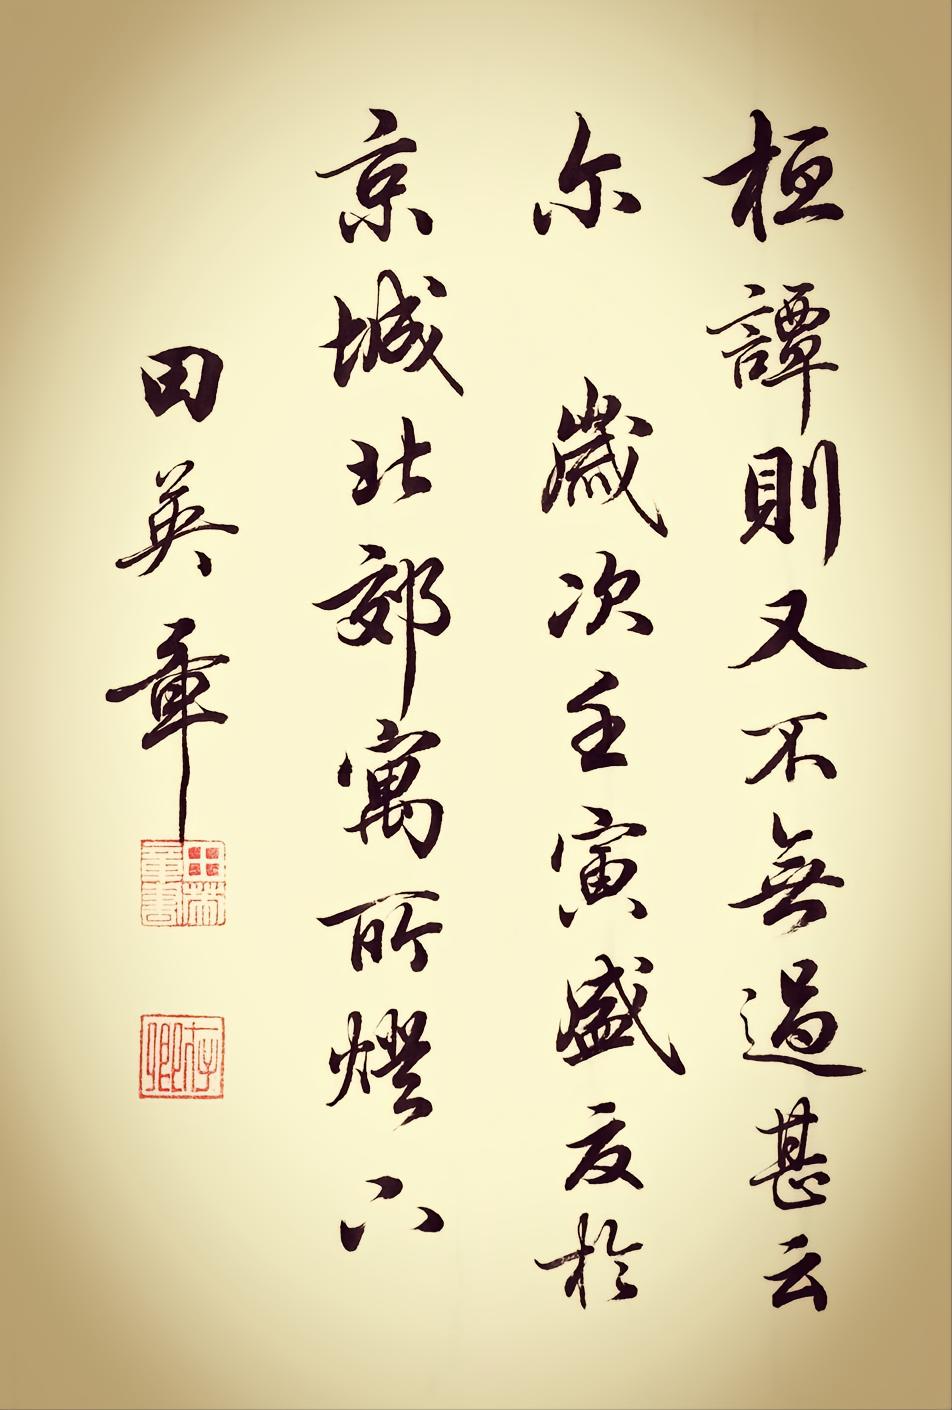 桓譚則又不無過甚云
尔 歲次壬寅盛夏於
京城北郊寓所燈下
田英章
田英章書
存卿